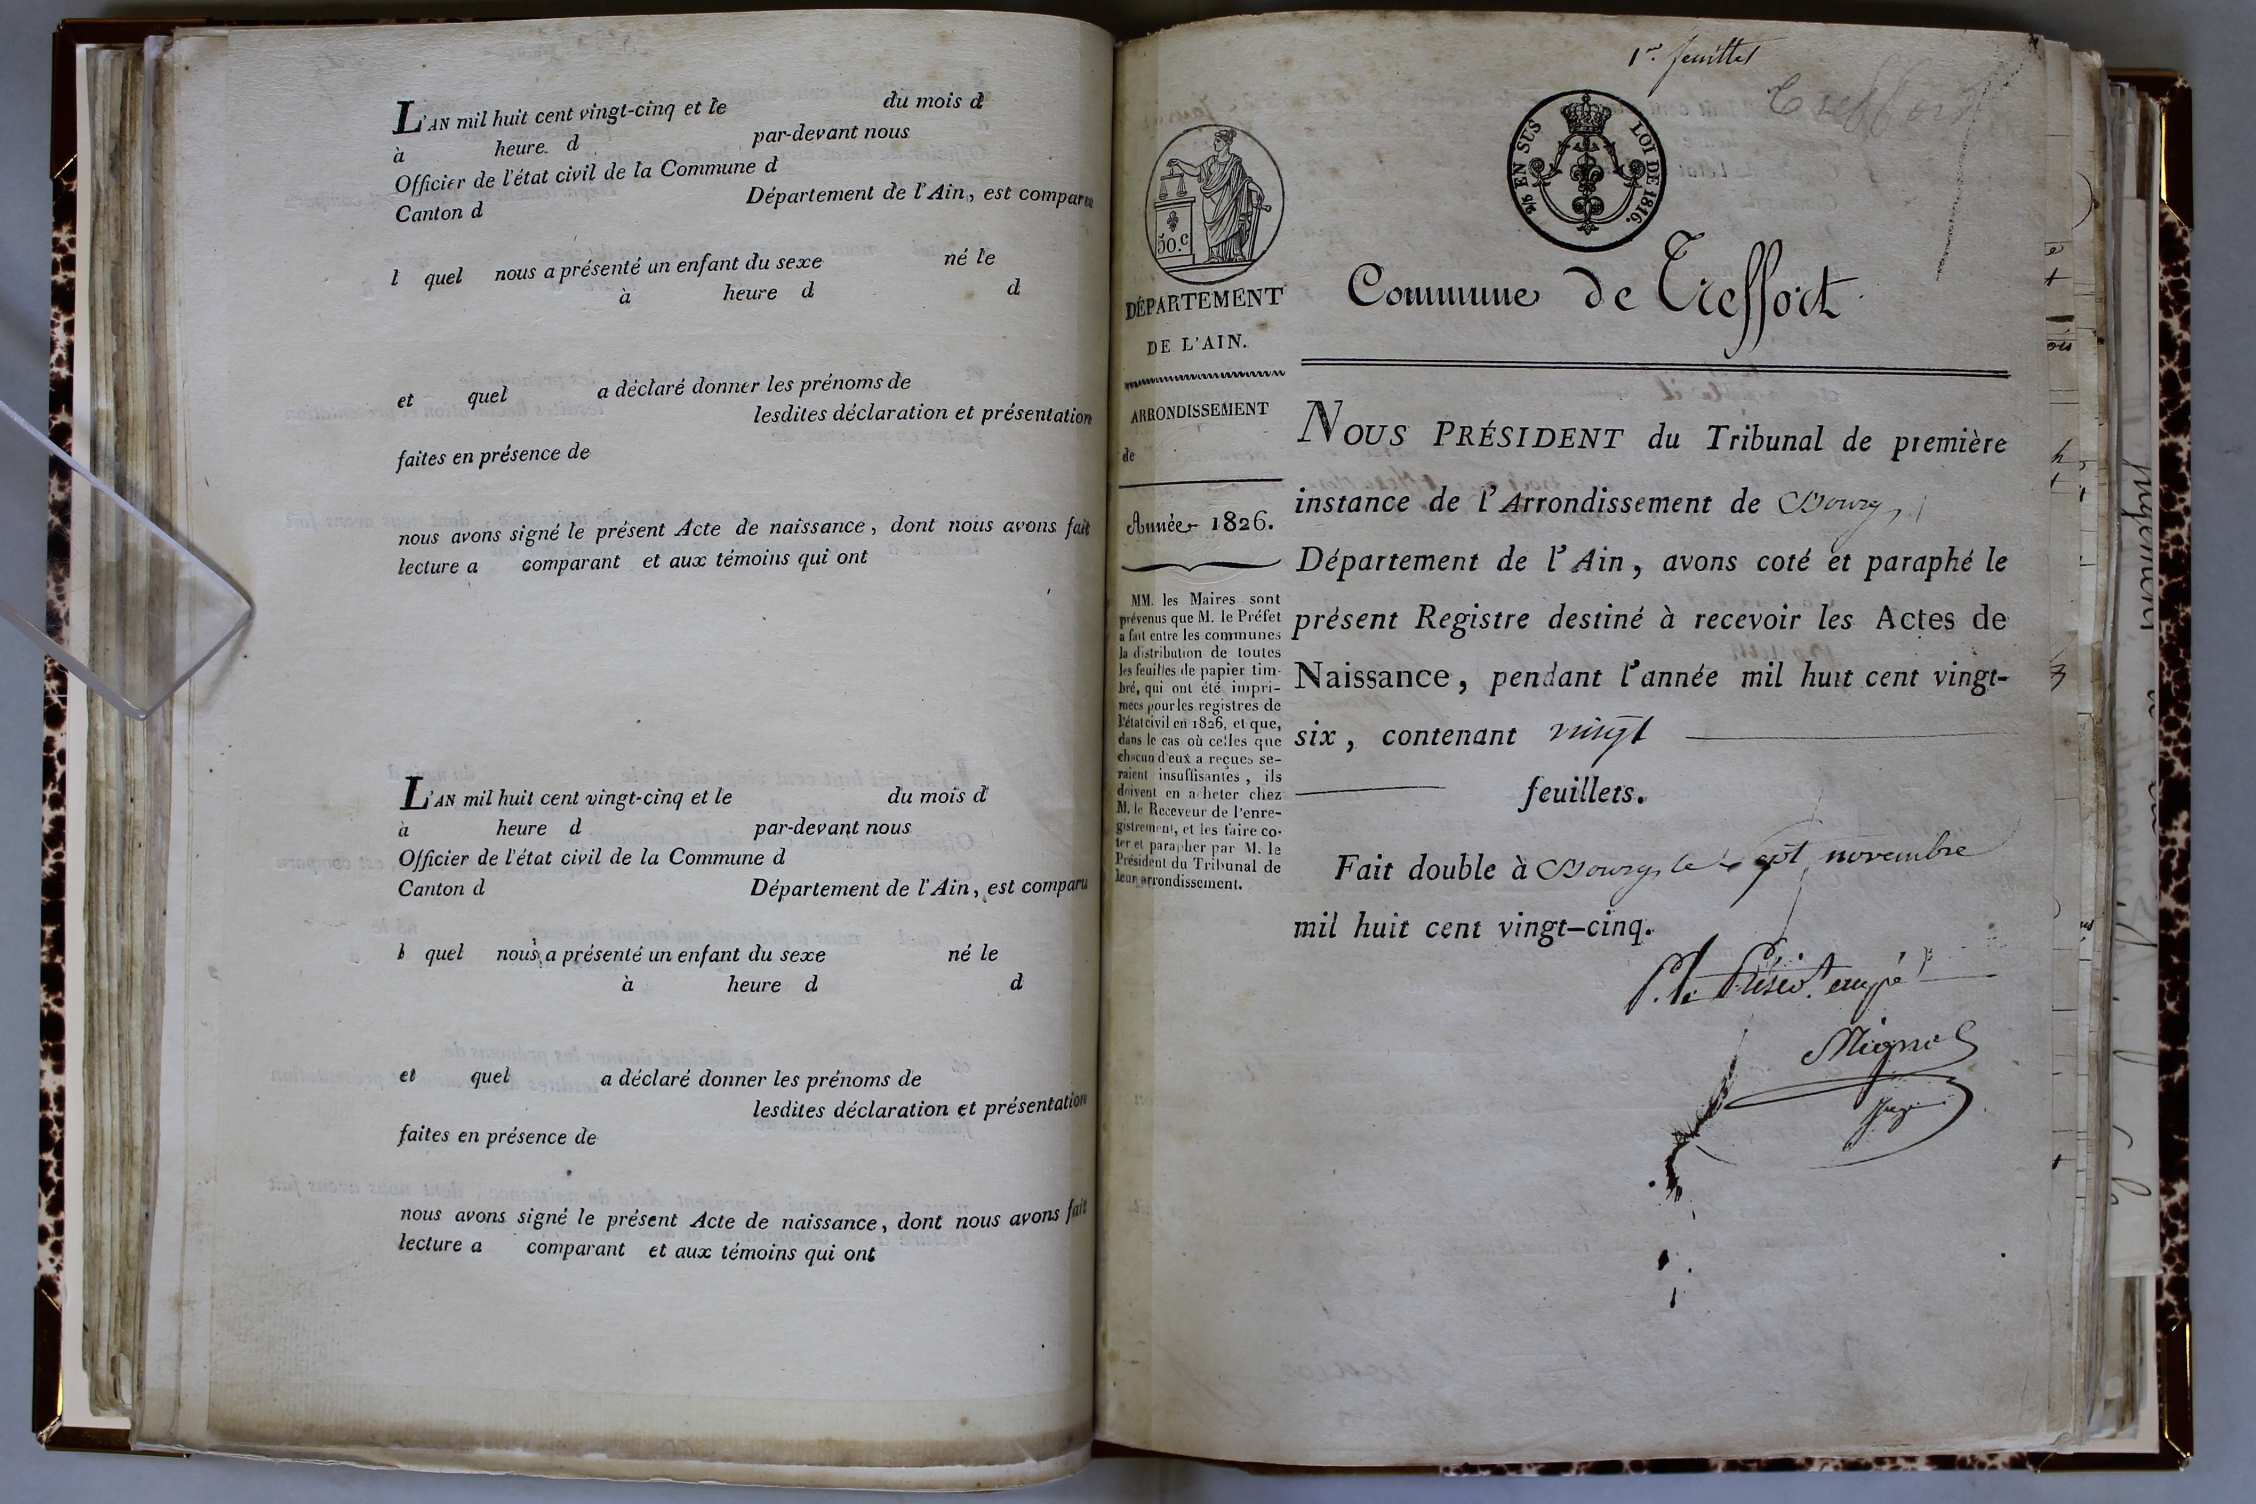 L'AN mil huit cent vingt-cinq et le du mois d
à heure d par-devant nous
Officier de l'état civil de la Commune d
Canton d Département de l'Ain, est comparu
l quel nous a présenté un enfant du sexe né le
à heure d d
et quel a déclaré donner les prénoms de
lesdites déclaration et présentation
faites en présence de
nous avons signé le présent Acte de naissance, dont nous avons fait
lecture a comparant et aux témoins qui ont
L'AN mil huit cent vingt-cinq et le du mois d
à heure d par-devant nous
Officier de l'état civil de la Commune d
Canton d Département de l'Ain, est comparu
l quel nous a présenté un enfant du sexe né le
à heure d d
et quel a déclaré donner les prénoms de
lesdites déclaration et présentation
faites en présence de
nous avons signé le présent Acte de naissance, dont nous avons fait
lecture a comparant et aux témoins qui ont
1er feuillet
Treffort
EN SUS LOI DE 1816.
50.c
DÉPARTEMENT
DE L'AIN.
ARRONDISSEMENT
de
Année 1826.
MM. les Maires sont
prévenus que M. le Préfet
a fait entre les communes
la distribution de toutes
les feuilles de papier tim-
bré, qui ont été impri-
mées pour les registres de
l'état civil en 1826, et que,
dans le cas où celles que
chacun d'eux a reçues se-
raient insuffisantes, ils
doivent en acheter chez
M. le Receveur de l'enre-
gistrement, et les faire co-
ter et parapher par M. le
Président du Tribunal de
leur arrondissement.
Commune de Treffort
NOUS PRÉSIDENT du Tribunal de première
instance de l'Arrondissement de Bourg
Département de l'Ain, avons coté et paraphé le
présent Registre destiné à recevoir les Actes de
Naissance, pendant l'année mil huit cent vingt-
six, contenant vingt
feuillets.
Fait double à Bourg, le sept novembre
mil huit cent vingt-cinq.
P. le Présid.t empé
Juge